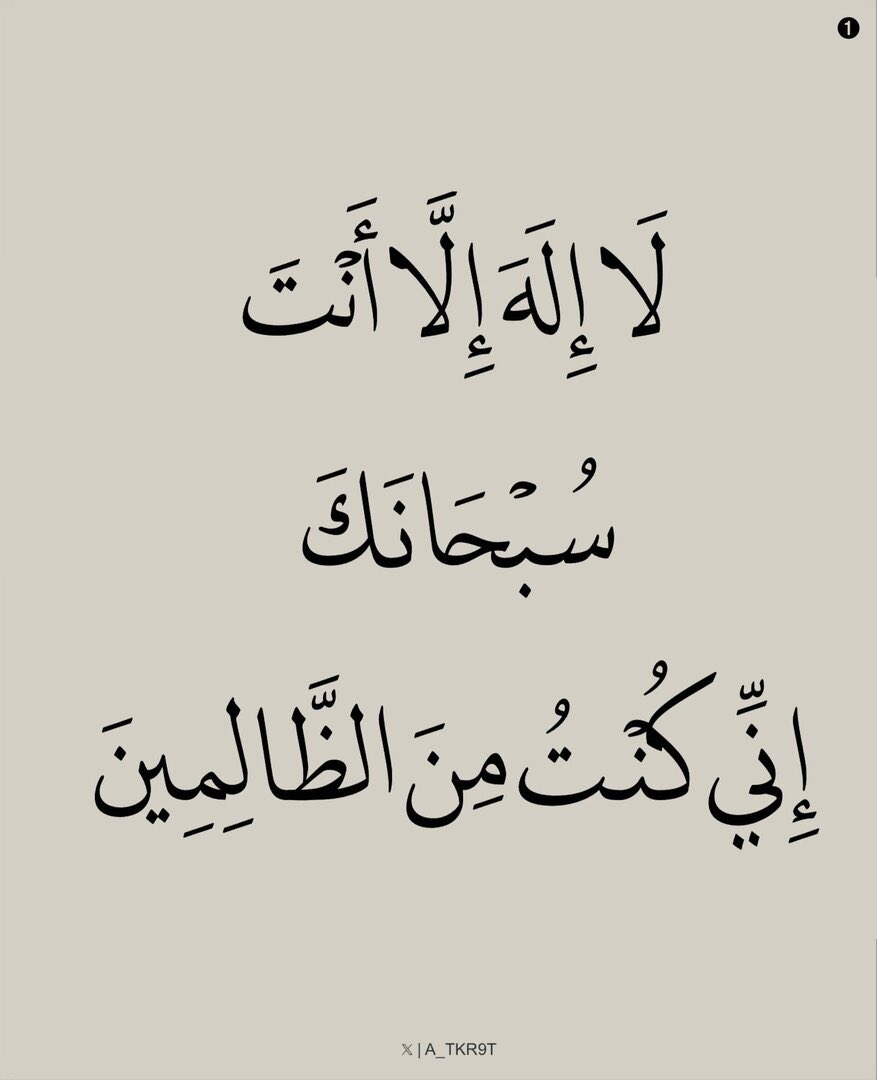 ❶
لَا إِلَهَ إِلَّا أَنْتَ
سُبْحَانَكَ
إِنِّي كُنْتُ مِنَ الظَّالِمِينَ
𝕏 | A_TKR9T